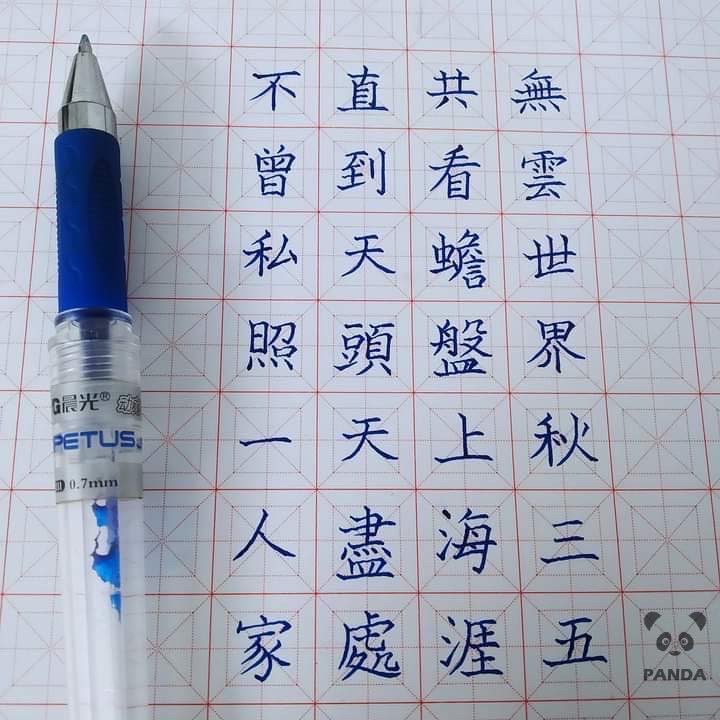 無雲世界秋三五
共看蟾盤上海涯
直到天頭天盡處
不曾私照一人家
G晨光®
PETUS
0.7mm
PANDA